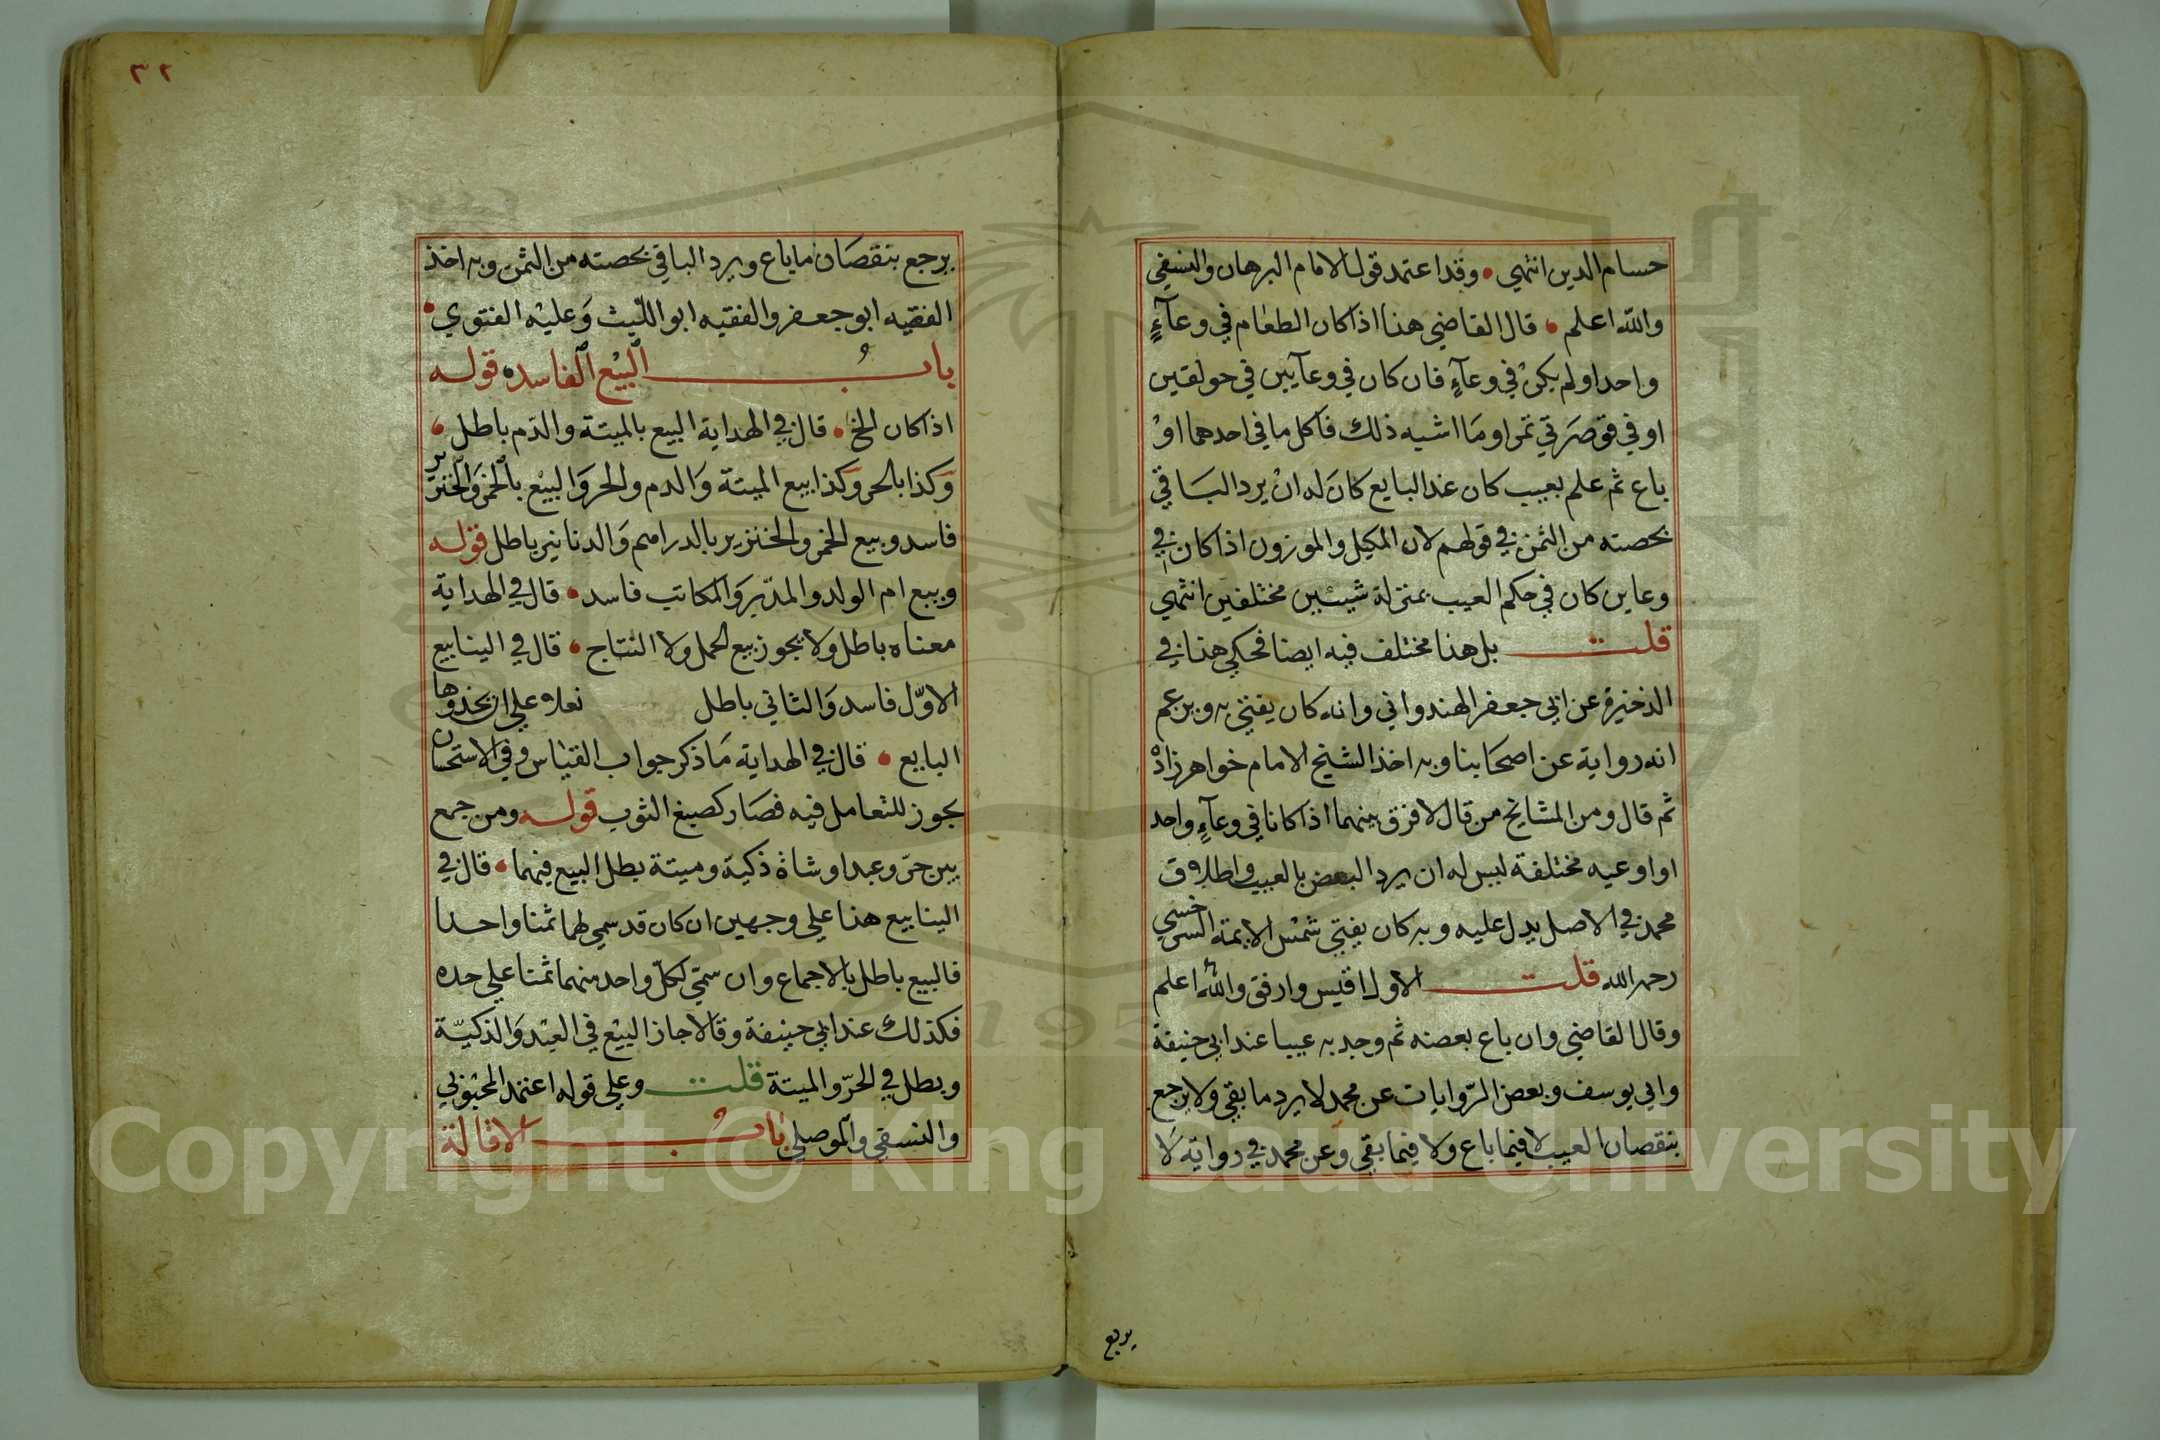 حسام الدين انتهي • وقد اعتمد قول الامام البرهان والنسفي
والله اعلم • قال القاضي هذا اذا كان الطعام في وعآءٍ
واحد او لم يكن في وعآءٍ فان كان في وعآيين في جولقين
او في قوصرتي تمر او ما اشبه ذلك فاكل ما في احدهما او
باع ثم علم بعيب كان عند البايع كان له ان يرد الباقي
بحصته من الثمن في قولهم لان المكيل والموزون اذا كان في
وعاين كان في حكم العيب بمنزلة شيئين مختلفين انتهي
قلت بل هذا مختلف فيه ايضا فحكي هذا في
الذخيرة عن ابي جعفر الهندواني وانه كان يفتي به ويزعم
انه رواية عن اصحابنا وبه اخذ الشيخ الامام خواهر زاده
ثم قال ومن المشايخ من قال لا فرق بينهما اذا كانا في وعآءٍ واحد
او اوعيه مختلفة ليس له ان يرد البعض بالعيب واطلاق
محمد في الاصل يدل عليه وبه كان يفتي شمس الايمة السرخسي
رحمه الله قلت الاول اقيس وارفق والله اعلم
وقال القاضي وان باع بعضه ثم وجد به عيبا عند ابي حنيفة
وابي يوسف وبعض الروايات عن محمد لا يرد ما بقي ولا يرجع
بنقصان العيب لا فيما باع ولا فيما بقي وعن محمد في رواية لا
يرجع
٣٢
يرجع بنقصان ما باع ويرد الباقي بحصته من الثمن وبه اخذ
الفقيه ابو جعفر والفقيه ابو الليث وعليه الفتوي •
باب البيع الفاسد قوله
اذا كان الخ • قال في الهداية البيع بالميتة والدم باطل •
وكذا بالحر وكذا بيع الميتة والدم والحر والبيع بالخمر والخنزير
فاسد وبيع الخمر والخنزير بالدراهم والدنانير باطل قوله
وبيع ام الولد والمدبر والمكاتب فاسد • قال في الهداية
معناه باطل ولا يجوز بيع الحمل ولا النتاج • قال في الينابيع
الاول فاسد والثاني باطل نعلا علي ان يحذوها
البايع • قال في الهداية ما ذكر جواب القياس وفي الاستحسان
يجوز للتعامل فيه فصار كصبغ الثوب قوله ومن جمع
بين حر وعبد او شاة ذكية وميتة بطل البيع فيهما • قال في
الينابيع هذا علي وجهين ان كان قد سمي لهما ثمنا واحدا
فالبيع باطل بالاجماع وان سمي لكل واحد منهما ثمنا علي حده
فكذلك عند ابي حنيفة وقالا جاز البيع في العبد والذكية
وبطل في الحر والميتة قلت وعلي قوله اعتمد المحبوبي
والنسفي والموصلي باب الاقالة
Copyright © King Saud University
1957